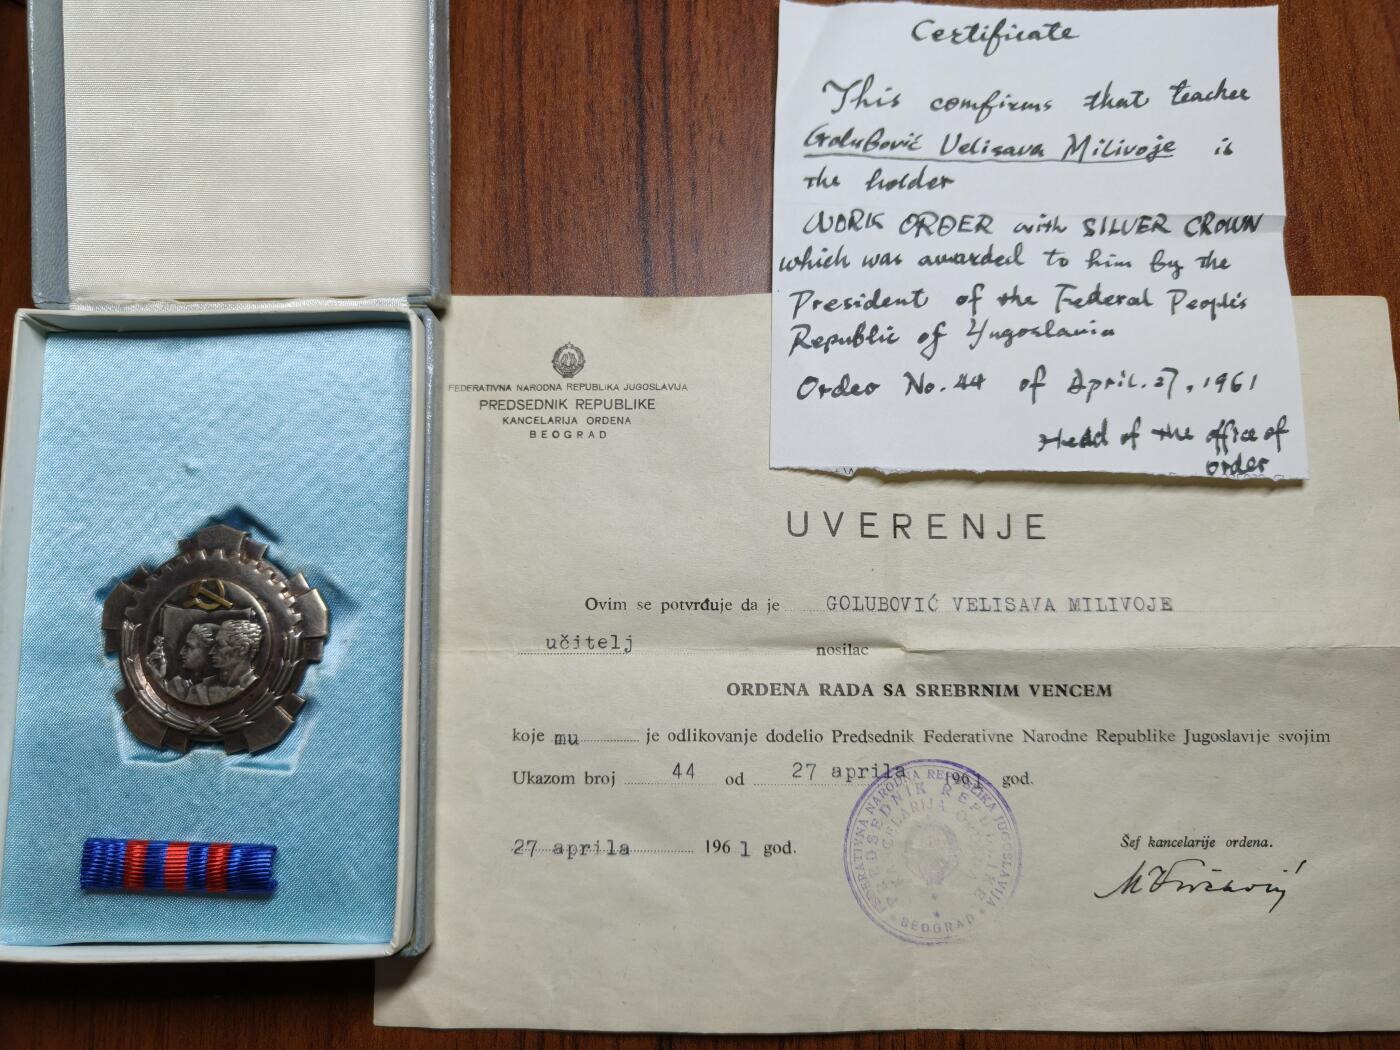 Certificate
This comfirms that teacher
Golubović Velisava Milivoje is
the holder
WORK ORDER with SILVER CROWN
which was awarded to him by the
President of the Federal People's
Republic of Yugoslavia
Order No. 44 of April. 27, 1961
Head of the office of
order
FEDERATIVNA NARODNA REPUBLIKA JUGOSLAVIJA
PREDSEDNIK REPUBLIKE
KANCELARIJA ORDENA
BEOGRAD
UVERENJE
Ovim se potvrđuje da je GOLUBOVIĆ VELISAVA MILIVOJE
učitelj nosilac
ORDENA RADA SA SREBRNIM VENCEM
koje mu je odlikovanje dodelio Predsednik Federativne Narodne Republike Jugoslavije svojim
Ukazom broj 44 od 27 aprila 1961 god.
27 aprila 1961 god.
Šef kancelarije ordena.
FEDERATIVNA NARODNA REPUBLIKA JUGOSLAVIJA
PREDSEDNIK REPUBLIKE
KANCELARIJA ORDENA
BEOGRAD